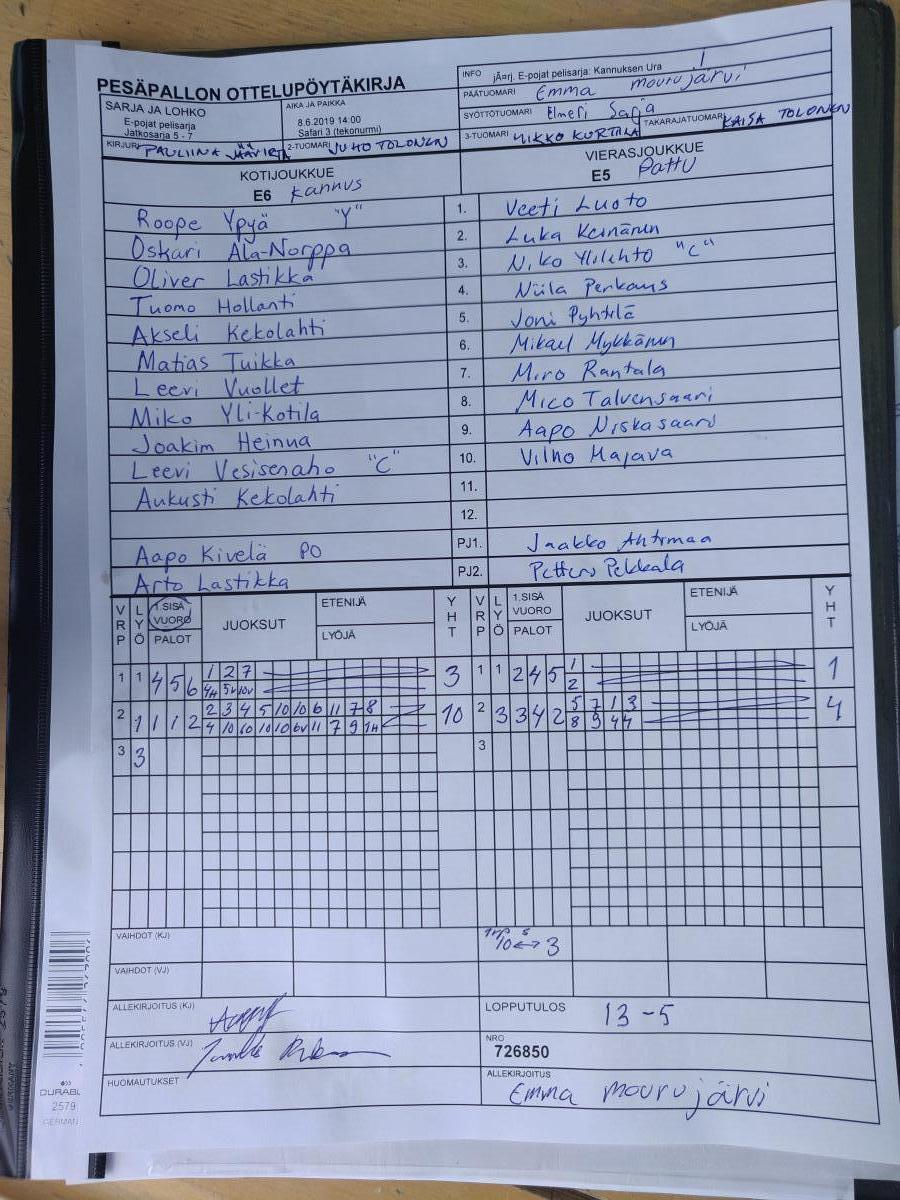 PESÄPALLON OTTELUPÖYTÄKIRJA
INFO jÃ¤rj. E-pojat pelisarja: Kannuksen Ura
PÄÄTUOMARI Emma mourujärvi
SARJA JA LOHKO
E-pojat pelisarja
Jatkosarja 5 - 7
AIKA JA PAIKKA
8.6.2019 14:00
Safari 3 (tekonurmi)
SYÖTTÖTUOMARI Elmeri Sarja
KIRJURI PAULIINA
2-TUOMARI JUHO TOLONEN
3-TUOMARI MIKKO KURTILA
TAKARAJATUOMARI KAISA TOLONEN
KOTIJOUKKUE
E6 Kannus
VIERASJOUKKUE
E5 Pattu
Roope Ypyä "Y" 1. Veeti Luoto
Oskari Ala-Norppa 2. Luka Keinänen
Oliver Lastikka 3. Niko Ylilehto "C"
Tuomo Hollanti 4. Niila Perkaus
Akseli Kekolahti 5. Joni Pyhtilä
Matias Tuikka 6. Mikael Mykkänen
Leevi Vuollet 7. Miro Rantala
Miko Yli-Kotila 8. Mico Talvensaari
Joakim Heinua 9. Aapo Niskasaari
Leevi Vesisenaho "C" 10. Vilho Majava
Aukusti Kekolahti 11.
12.
Aapo Kivelä PO PJ1. Jaakko Ahtimaa
Arto Lastikka PJ2. Petteri Pekkala
VRP LYÖ 1.SISÄ VUORO PALOT JUOKSUT ETENIJÄ LYÖJÄ YHT VRP LYÖ 1.SISÄ VUORO PALOT JUOKSUT ETENIJÄ LYÖJÄ YHT
1 1 4 5 6 1 2 7 3 1 1 2 4 5 1 1
4H 5V 10V 2
2 1 1 1 2 2 3 4 5 10 10 6 11 7 8 10 2 3 3 4 2 5 7 1 3 4
4 10 10 10 10 6V 11 7 9 1H 8 9 4 4
3 3 3
VAIHDOT (KJ) 10 ↔ 3
VAIHDOT (VJ)
ALLEKIRJOITUS (KJ)
LOPPUTULOS 13 - 5
ALLEKIRJOITUS (VJ)
NRO
726850
HUOMAUTUKSET
ALLEKIRJOITUS
Emma mourujärvi
DURABL
2579
GERMAN